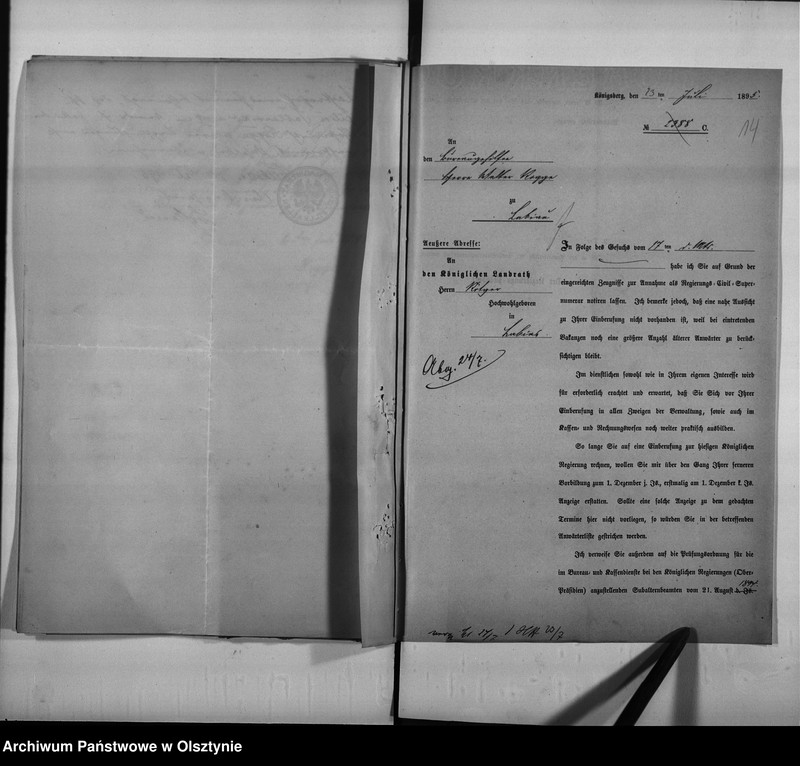 Königsberg, den 23 ten Juli 1895.
№ 5388 C.
14
An
den Büreaugehülfen
Herrn Walter Rogge
zu
Labiau
Aeußere Adresse:
An
den Königlichen Landrath
Herrn
Hochwohlgeboren
in
Labiau
Abg. 24/7.
In Folge des Gesuchs vom 17 ten d. Mts.
habe ich Sie auf Grund der
eingereichten Zeugnisse zur Annahme als Regierungs-Civil-Super-
numerar notiren lassen. Ich bemerke jedoch, daß eine nahe Aussicht
zu Ihrer Einberufung nicht vorhanden ist, weil bei eintretenden
Vakanzen noch eine größere Anzahl älterer Anwärter zu berück-
sichtigen bleibt.
Im dienstlichen sowohl wie in Ihrem eigenen Interesse wird
für erforderlich erachtet und erwartet, daß Sie Sich vor Ihrer
Einberufung in allen Zweigen der Verwaltung, sowie auch im
Kassen- und Rechnungswesen noch weiter praktisch ausbilden.
So lange Sie auf eine Einberufung zur hiesigen Königlichen
Regierung rechnen, wollen Sie mir über den Gang Ihrer ferneren
Vorbildung zum 1. Dezember j. Js., erstmalig am 1. Dezember k. Js.
Anzeige erstatten. Sollte eine solche Anzeige zu dem gedachten
Termine hier nicht vorliegen, so würden Sie in der betreffenden
Anwärterliste gestrichen werden.
Ich verweise Sie außerdem auf die Prüfungsordnung für die
im Bureau- und Kassendienste bei den Königlichen Regierungen (Ober-
Präsidien) anzustellenden Subalternbeamten vom 21. August d. Js. 1894
Archiwum Państwowe w Olsztynie